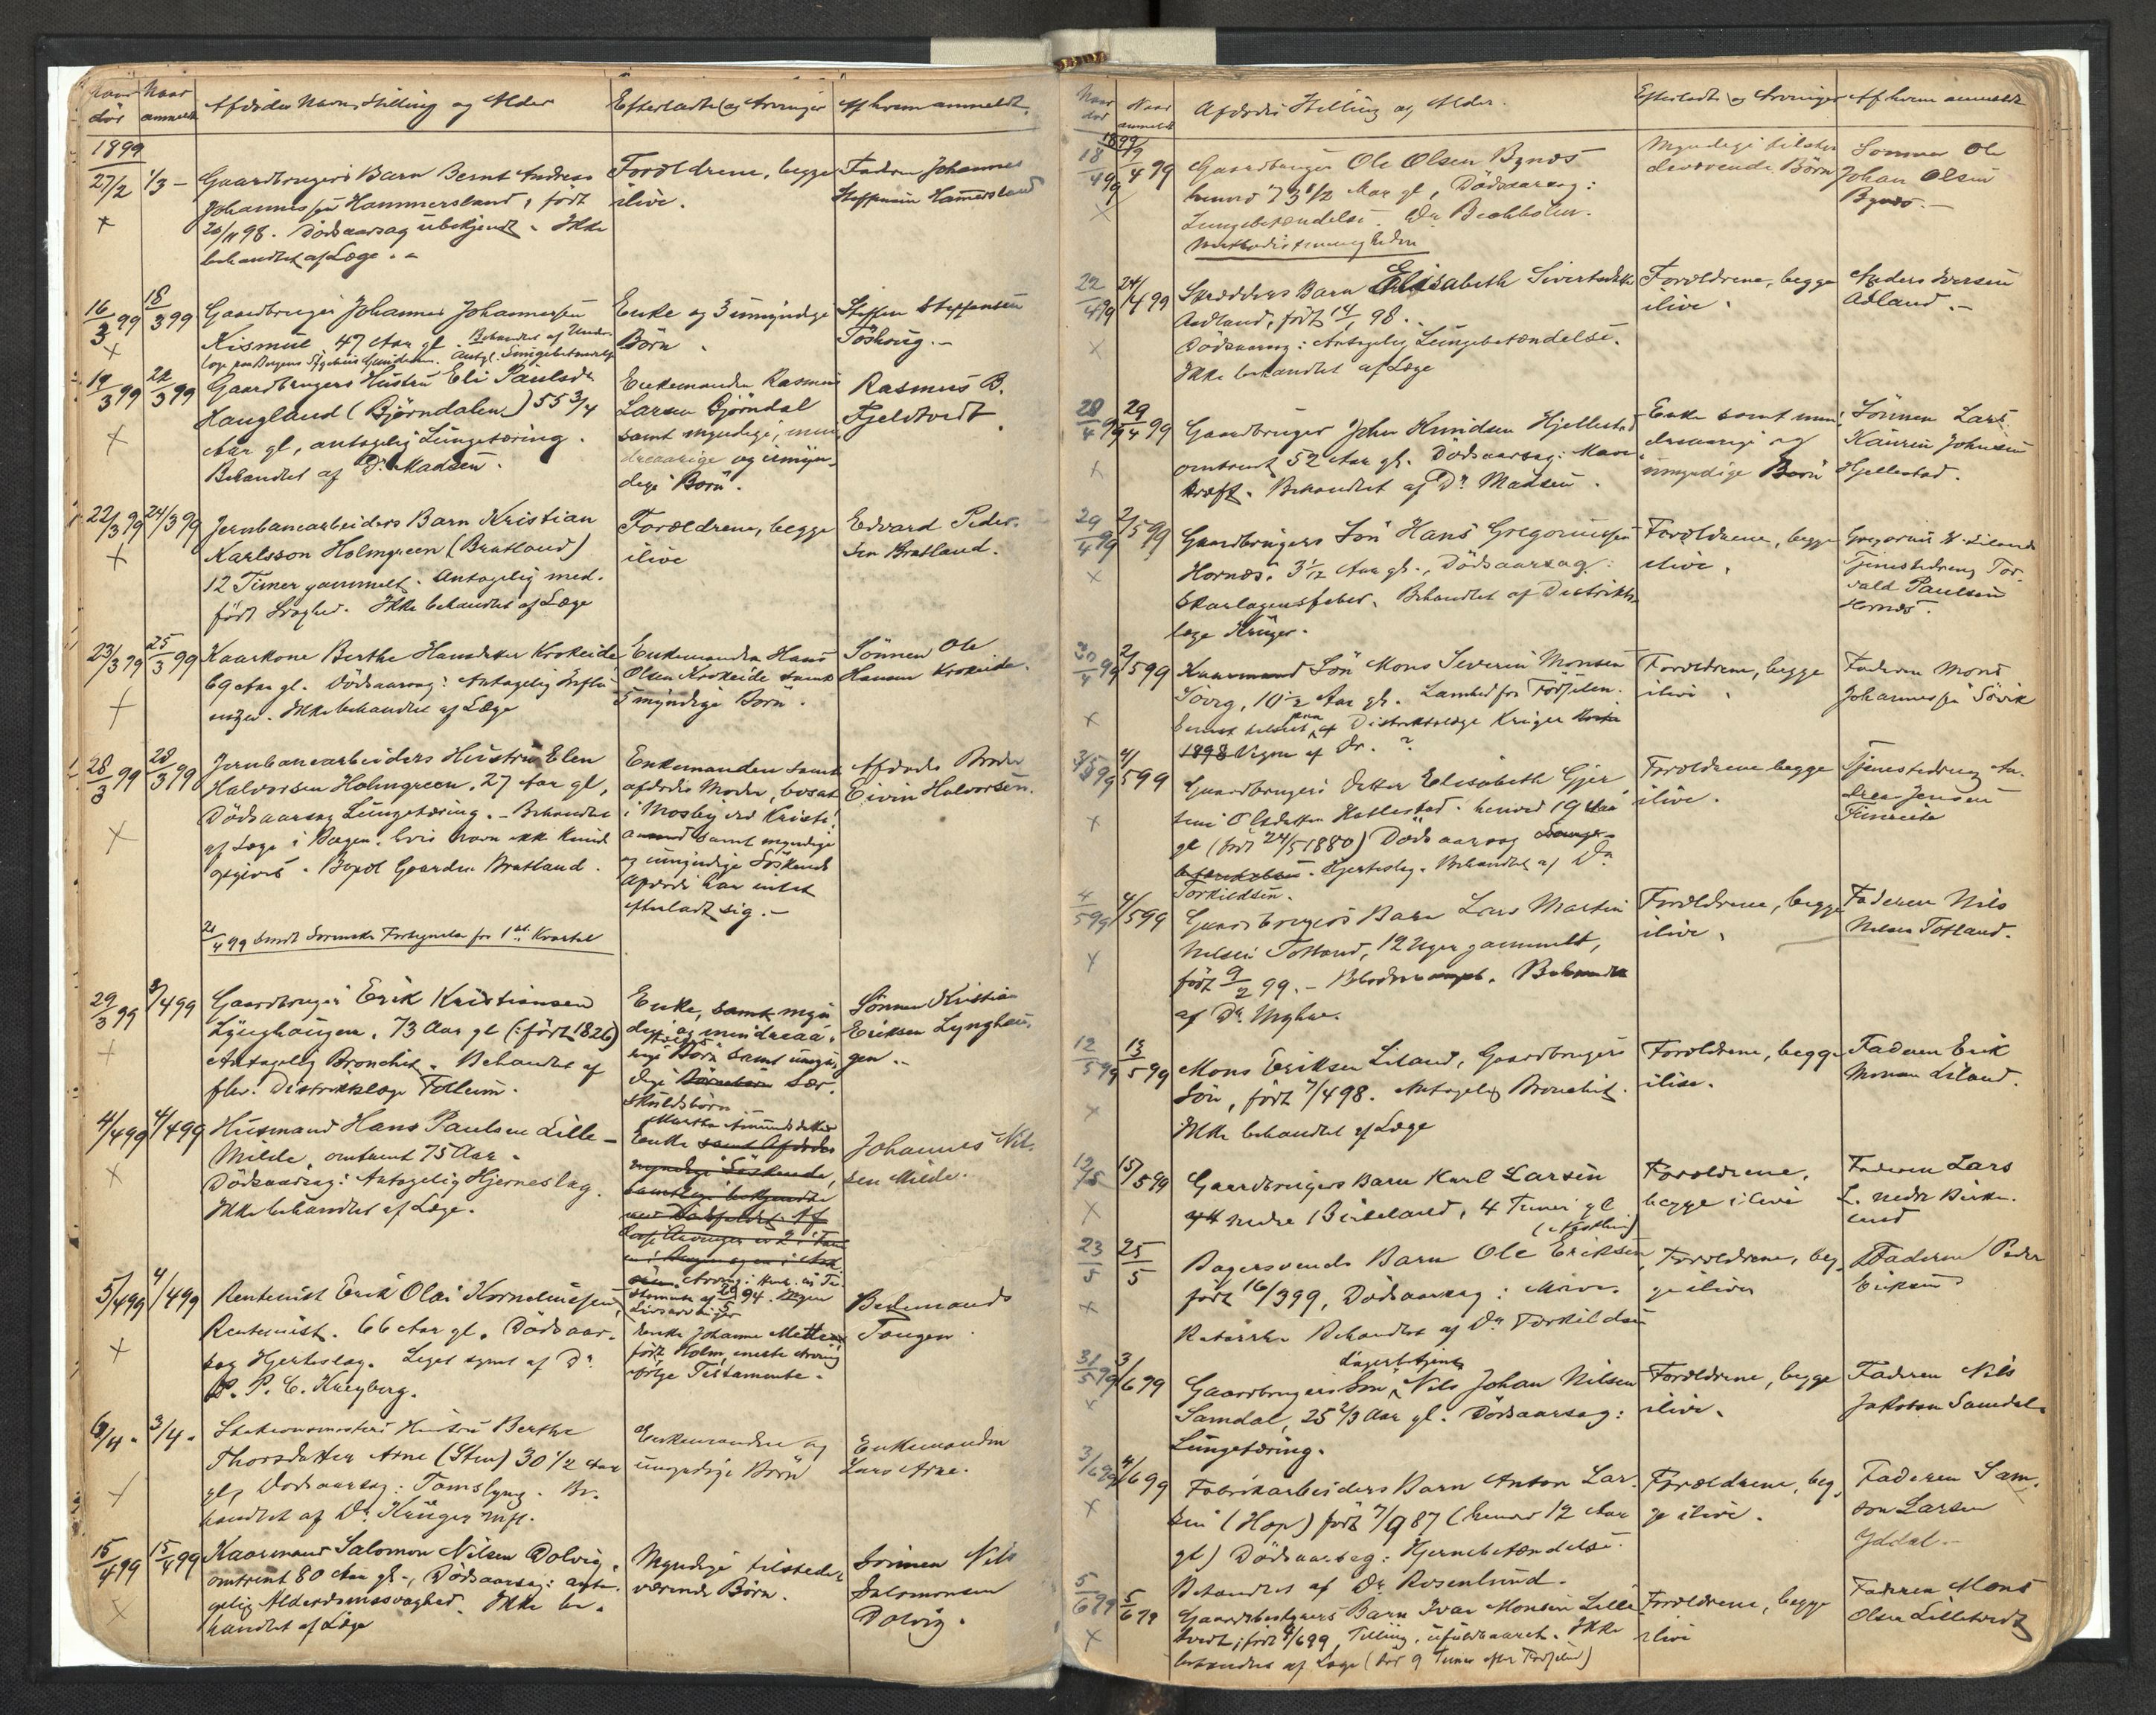 Naar død | Naar anmeldt | Afdødes Navn, Stilling og Alder | Efterladte og Arvinger | Af hvem anmeldt.
1899
27/2 | 1/3 – | Gaardbrugers Barn Bernt Andreas | Forældrene, begge | Faderen Johannes
Johannessen Hammersland, født | ilive. | Steffensen Hammersland
20/11 98. Dødsaarsag ubekjendt. Ikke
behandlet af Læge.
16/3 99 | 18/3 99 | Gaardbruger Johannes Johannessen | Enke og 3 umyndige | Steffen Steffensen
Kismul, 47 Aar gl. Behandlet af Under- | Børn. |
læge paa Bergens Sygehus. Antgl. Lungebetændelse
19/3 99 | 22/3 99 | Gaardbrugers Hustru Eli Paulsdtr | Enkemanden Rasmus | Rasmus B.
Haugland (Bjørndalen) 55 3/4 | Larsen Bjørndal | Fjeldtvedt.
Aar gl, antagelig Lungetæring. | samt myndige, min-
Behandlet af Dr Madsen. | dreaarige og umyn-
dige Børn.
22/3 99 | 24/3 99 | Jernbanearbeiders Barn Kristian | Forældrene, begge | Edvard Peder-
Karlsson Holmgreen (Bratland) | ilive | sen Bratland.
12 Timer gammelt. Antagelig med-
født Svaghed. Ikke behandlet af Læge
23/3 99 | 25/3 99 | Kaarkone Berthe Hansdatter Krokeide | Enkemanden Hans | Sønnen Ole
69 Aar gl. Dødsaarsag: Antagelig Influ- | Olsen Krokeide samt | Hansen Krokeide.
enza. Ikke behandlet af Læge | 5 myndige Børn.
28/3 99 | 28/3 99 | Jernbanearbeiders Hustru Elen | Enkemanden samt | Afdødes Broder
Halvorsen Holmgreen, 27 Aar gl, | afdødes Moder, bosat | Eivin Halvorsen.
Dødsaarsag Lungetæring. – Behandlet | i Mosby ved Kristi-
af Læge i Bergen, hvis Navn ikke kunde | ansand samt myndige
opgives. Bopæl Gaarden Bratland. | og umyndige Søskende
Afdøde har intet
efterladt sig. –
21/4 99 sendt Sorenskr. Fortegnelse for 1ste Kvartal
29/3 99 | 3/4 99 | Gaardbruger Erik Kristiansen | Enke, samt myn- | Sønnen Kristian
Lynghaugen, 73 Aar gl (: født 1826) | dige og mindreaa- | Eriksen Lynghau-
Antagelig Bronchit. Behandlet af | rige Børn samt umyn- | gen.
fhv. Distriktslæge Follum. | dige Børnebørn Sær-
skuldsbørn
4/4 99 | 4/4 99 | Husmand Hans Paulsen Lille- | Martha Amundsdatter
Milde, omtrent 75 Aar. | Enke samt Afdødes | Johannes Nil-
Dødsaarsag: Antagelig Hjerneslag. | myndige Søskende, | sen Milde.
Ikke behandlet af Læge.
5/4 99 | 4/4 99 | Rentenist Erik Olai Korneliussen, | Bedemand
Rentenist. 66 Aar gl. Dødsaar- | Enke Johanne | Tangen.
sag Hjerteslag. Liget synet af Dr. | født Holm, eneste Arving
P. C. Kreyberg. | ifølge Testamente.
6/4 – | 3/4 – | Stationsmesters Hustru Berthe | Enkemanden og | Enkemanden
Thorsdatter Arne (Sten) 30 1/2 Aar | umyndige Børn | Lars Arne.
gl, Dødsaarsag: . Be-
handlet af Dr. Krüger
15/4 99 | 15/4 99 | Kaarmand Salomon Nilsen Dolvig, | Myndige tilstede- | Sønnen Nils
omtrent 80 Aar gl., Dødsaarsag: anta- | værende Børn. | Salomonsen
gelig Alderdomssvaghed. Ikke be- | Dolvig.
handlet af Læge
Naar død | Naar anmeldt | Afdødes Stilling og Alder. | Efterladte og Arvinger | Af hvem anmeldt
1899
18/4 99 | 19/4 99 | Gaardbruger Ole Olsen Bynes | Myndige tilste- | Sønnen Ole
henved 73 1/2 Aar gl, Dødsaarsag: | deværende Børn | Johan Olsen
Lungebetændelse. Dr | Bynes. –
Methodistmenigheden
22/4 99 | 24/4 99 | Skrædders Barn Elisabeth Sivertsdtr | Forældrene, begge | Anders Iversen
Aadland, født 98. | ilive. | Adland. –
Dødsaarsag: Antagelig Lungebetændelse.
Ikke behandlet af Læge
28/4 99 | 29/4 99 | Gaardbruger John Knudsen Hjellestad | Enke samt min- | Sønnen Lars
omtrent 52 Aar gl. Dødsaarsag: Mave- | dreaarige og | Kaurin Johnsen
kræft. Behandlet af Dr. Madsen. | umyndige Børn | Hjellestad.
29/4 99 | 2/5 99 | Gaardbrugers Søn Hans Gregoriussen | Forældrene, begge | Gregorius
Hornes, 3 1/12 Aar gl., Dødsaarsag: | ilive. | Tjenestedreng Tor-
Skarlagensfeber. Behandlet af Distrikts- | vald Paulsen
læge Krüger. | Hornes.
30/4 99 | 2/5 99 | Kaarmand Søn Mons Severin Monsen | Forældrene, begge | Faderen Mons
Sørvig, 10 1/2 Aar gl. Lamhed fra Fødselen. | ilive. | Johannessen Søvik
Distriktslæge Krüger
1898 af Dr. ?
3/5 99 | 4/5 99 | Gaardbrugers Datter Elisabeth Gjer- | Forældrene begge | Tjenestedreng An-
tine Olsdatter Hatlestad. henved 19 Aar | ilive. | dreas Jensen
gl (født 24/5 1880) Dødsaarsag Lunge-
betændelse. Hjerteslag. Behandlet af Dr.
Torkildsen.
4/5 99 | 4/5 99 | Gaardbrugers Barn Lars Martin | Forældrene, begge | Faderen Nils
Nilsen Totland, 12 Uger gammelt, | ilive. | Nilsen Totland.
født 9/2 99. – Behandlet
af Dr. Myhre.
12/5 99 | 13/5 99 | Mons Eriksen Liland, Gaardbrugers | Forældrene, begge | Faderen Erik
Søn, født 7/4 98. Antagelig Bronchit. | ilive. | Monsen Liland.
Ikke behandlet af Læge
12/5 | 15/5 99 | Gaardbrugers Barn Karl Larsen | Forældrene, | Faderen Lars
nedre Birkeland, 4 Timer gl | begge ilive | L. nedre Birke-
land
23/5 | 25/5 | Bagersvends Barn Ole Eriksen | Forældrene, beg- | Faderen Peder
født 16/3 99, Dødsaarsag: Mave- | ge ilive | Eriksen
Katarrh. Behandlet af Dr. Torkildsen
31/5 99 | 3/6 99 | Gaardbrugers Søn, Nils Johan Nilsen | Forældrene, begge | Faderen Nils
Samdal, 25 2/3 Aar gl. Dødsaarsag: | ilive. | Jakobsen Samdal.
Lungetæring.
3/6 99 | 4/6 99 | Fabrikarbeiders Barn Anton Lar- | Forældrene, beg- | Faderen Sam-
sen (Hop) født 7/9 87 (henved 12 Aar | ge ilive. | son Larsen
gl) Dødsaarsag: Hjernebetændelse. | Yddal. –
Behandlet af Dr. Rosenlund.
5/6 99 | 5/6 99 | Gaardbestyrers Barn Ivar Monsen Lille- | Forældrene, begge | Faderen Mons
tvedt, født 4/6 99, Tvilling, ufuldbaaret. Ikke | ilive | Olsen Lilletvedt
behandlet af Læge (død 9 Timer efter Fødselen)